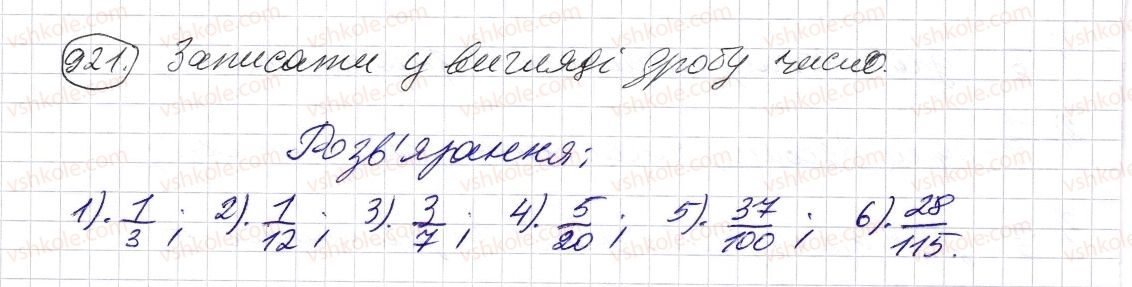 921. Записати у вигляді дробу число.
Розв'язання:
1). 1/3 ; 2). 1/12 ; 3). 3/7 ; 4). 5/20 ; 5). 37/100 ; 6). 28/115.